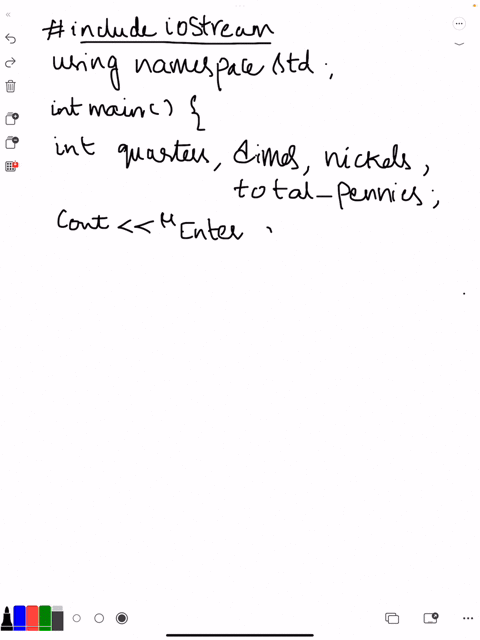 #include iostream
using namespace std;
int main() {
int quarters, dimes, nickels,
total_pennies;
Cout << "Enter